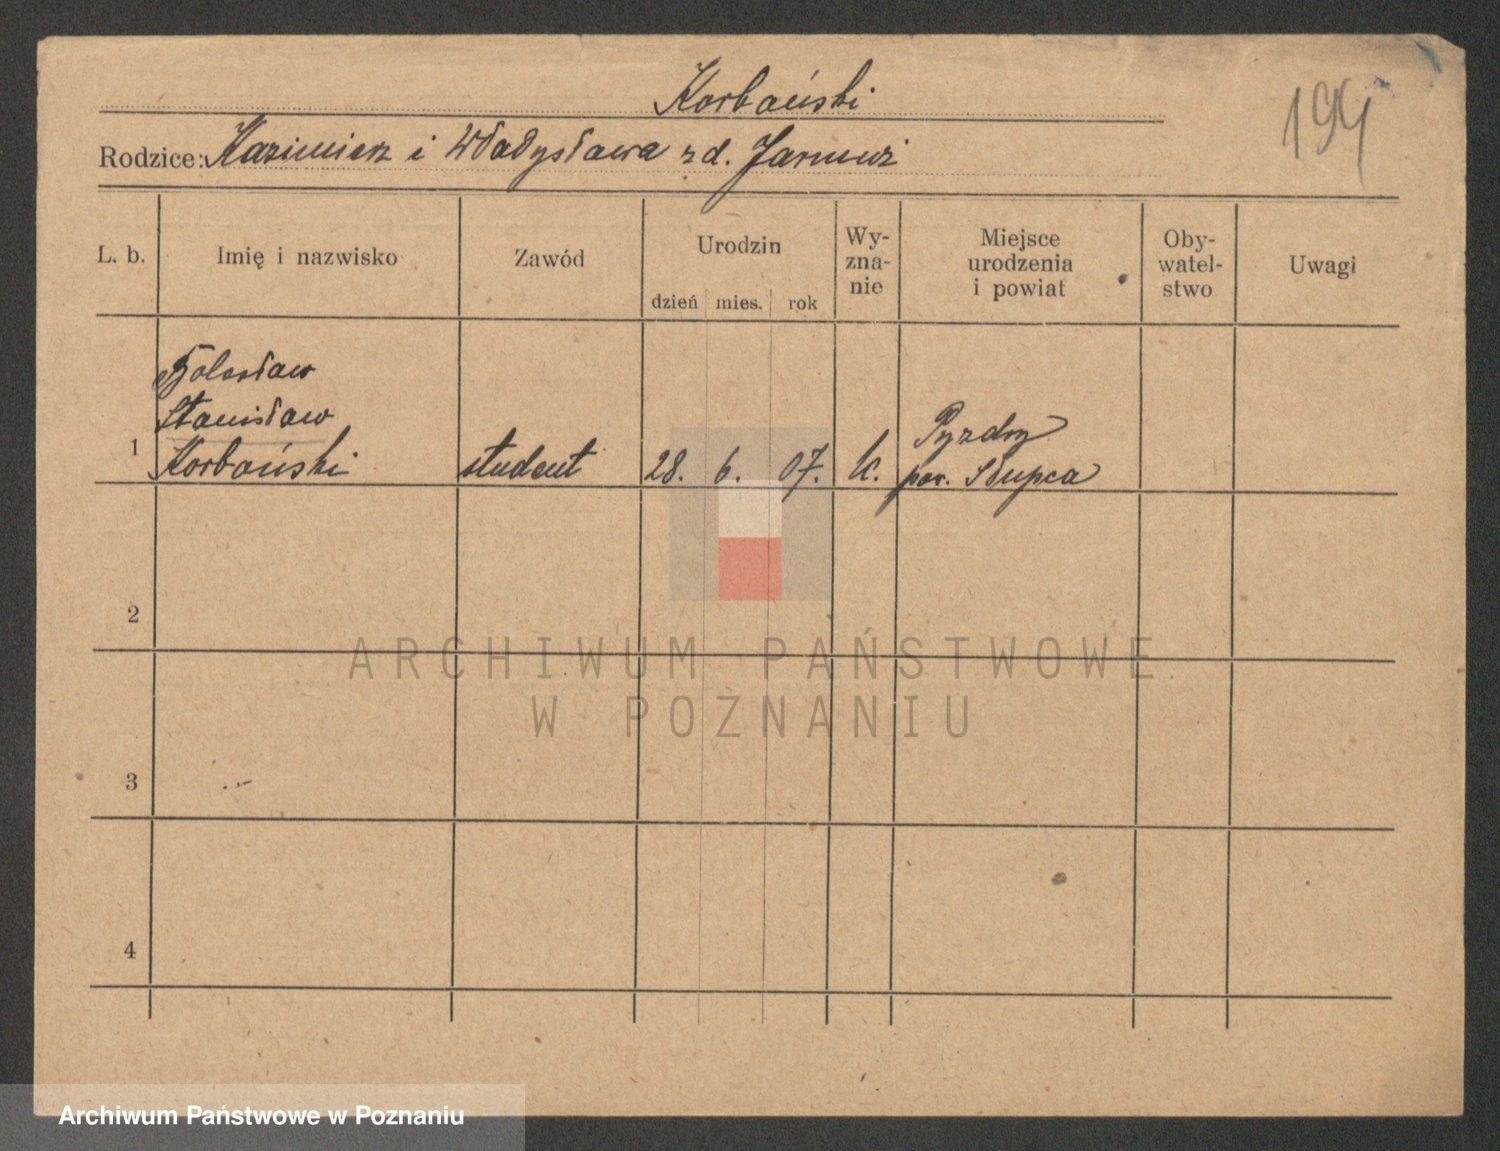 Korbański
194
Rodzice: Kazimierz i Władysława z d. Janusz
L. b.
Imię i nazwisko
Zawód
Urodzin
dzień mies. rok
Wy-
zna-
nie
Miejsce
urodzenia
i powiat
Oby-
watel-
stwo
Uwagi
Bolesław
Stanisław
1 Korbański student 28. 6. 07. k.
Pyzdry
pow. Słupca
2
ARCHIWUM PAŃSTWOWE
W POZNANIU
3
4
Archiwum Państwowe w Poznaniu